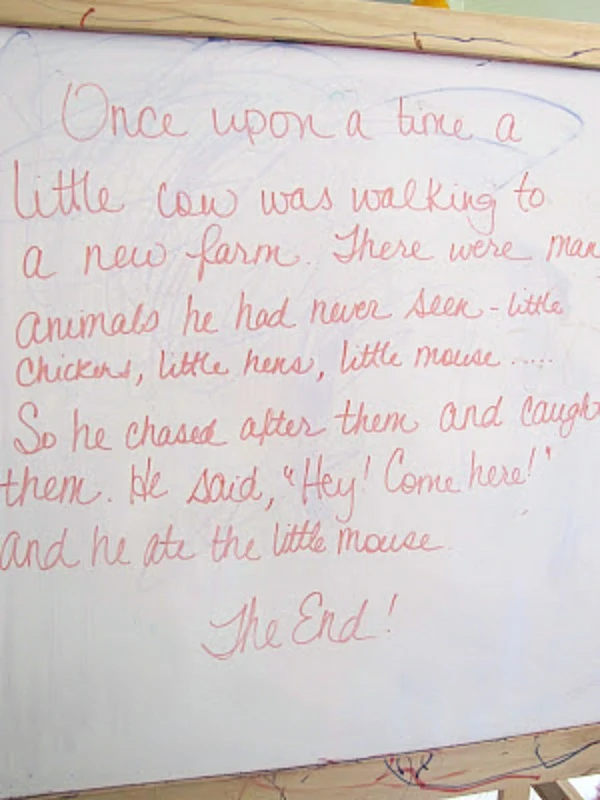 Once upon a time a
little cow was walking to
a new farm. There were man
animals he had never seen - little
chickens, little hens, little mouse .....
So he chased after them and caugh
them. He said, "Hey! Come here!"
and he ate the little mouse.
The End!